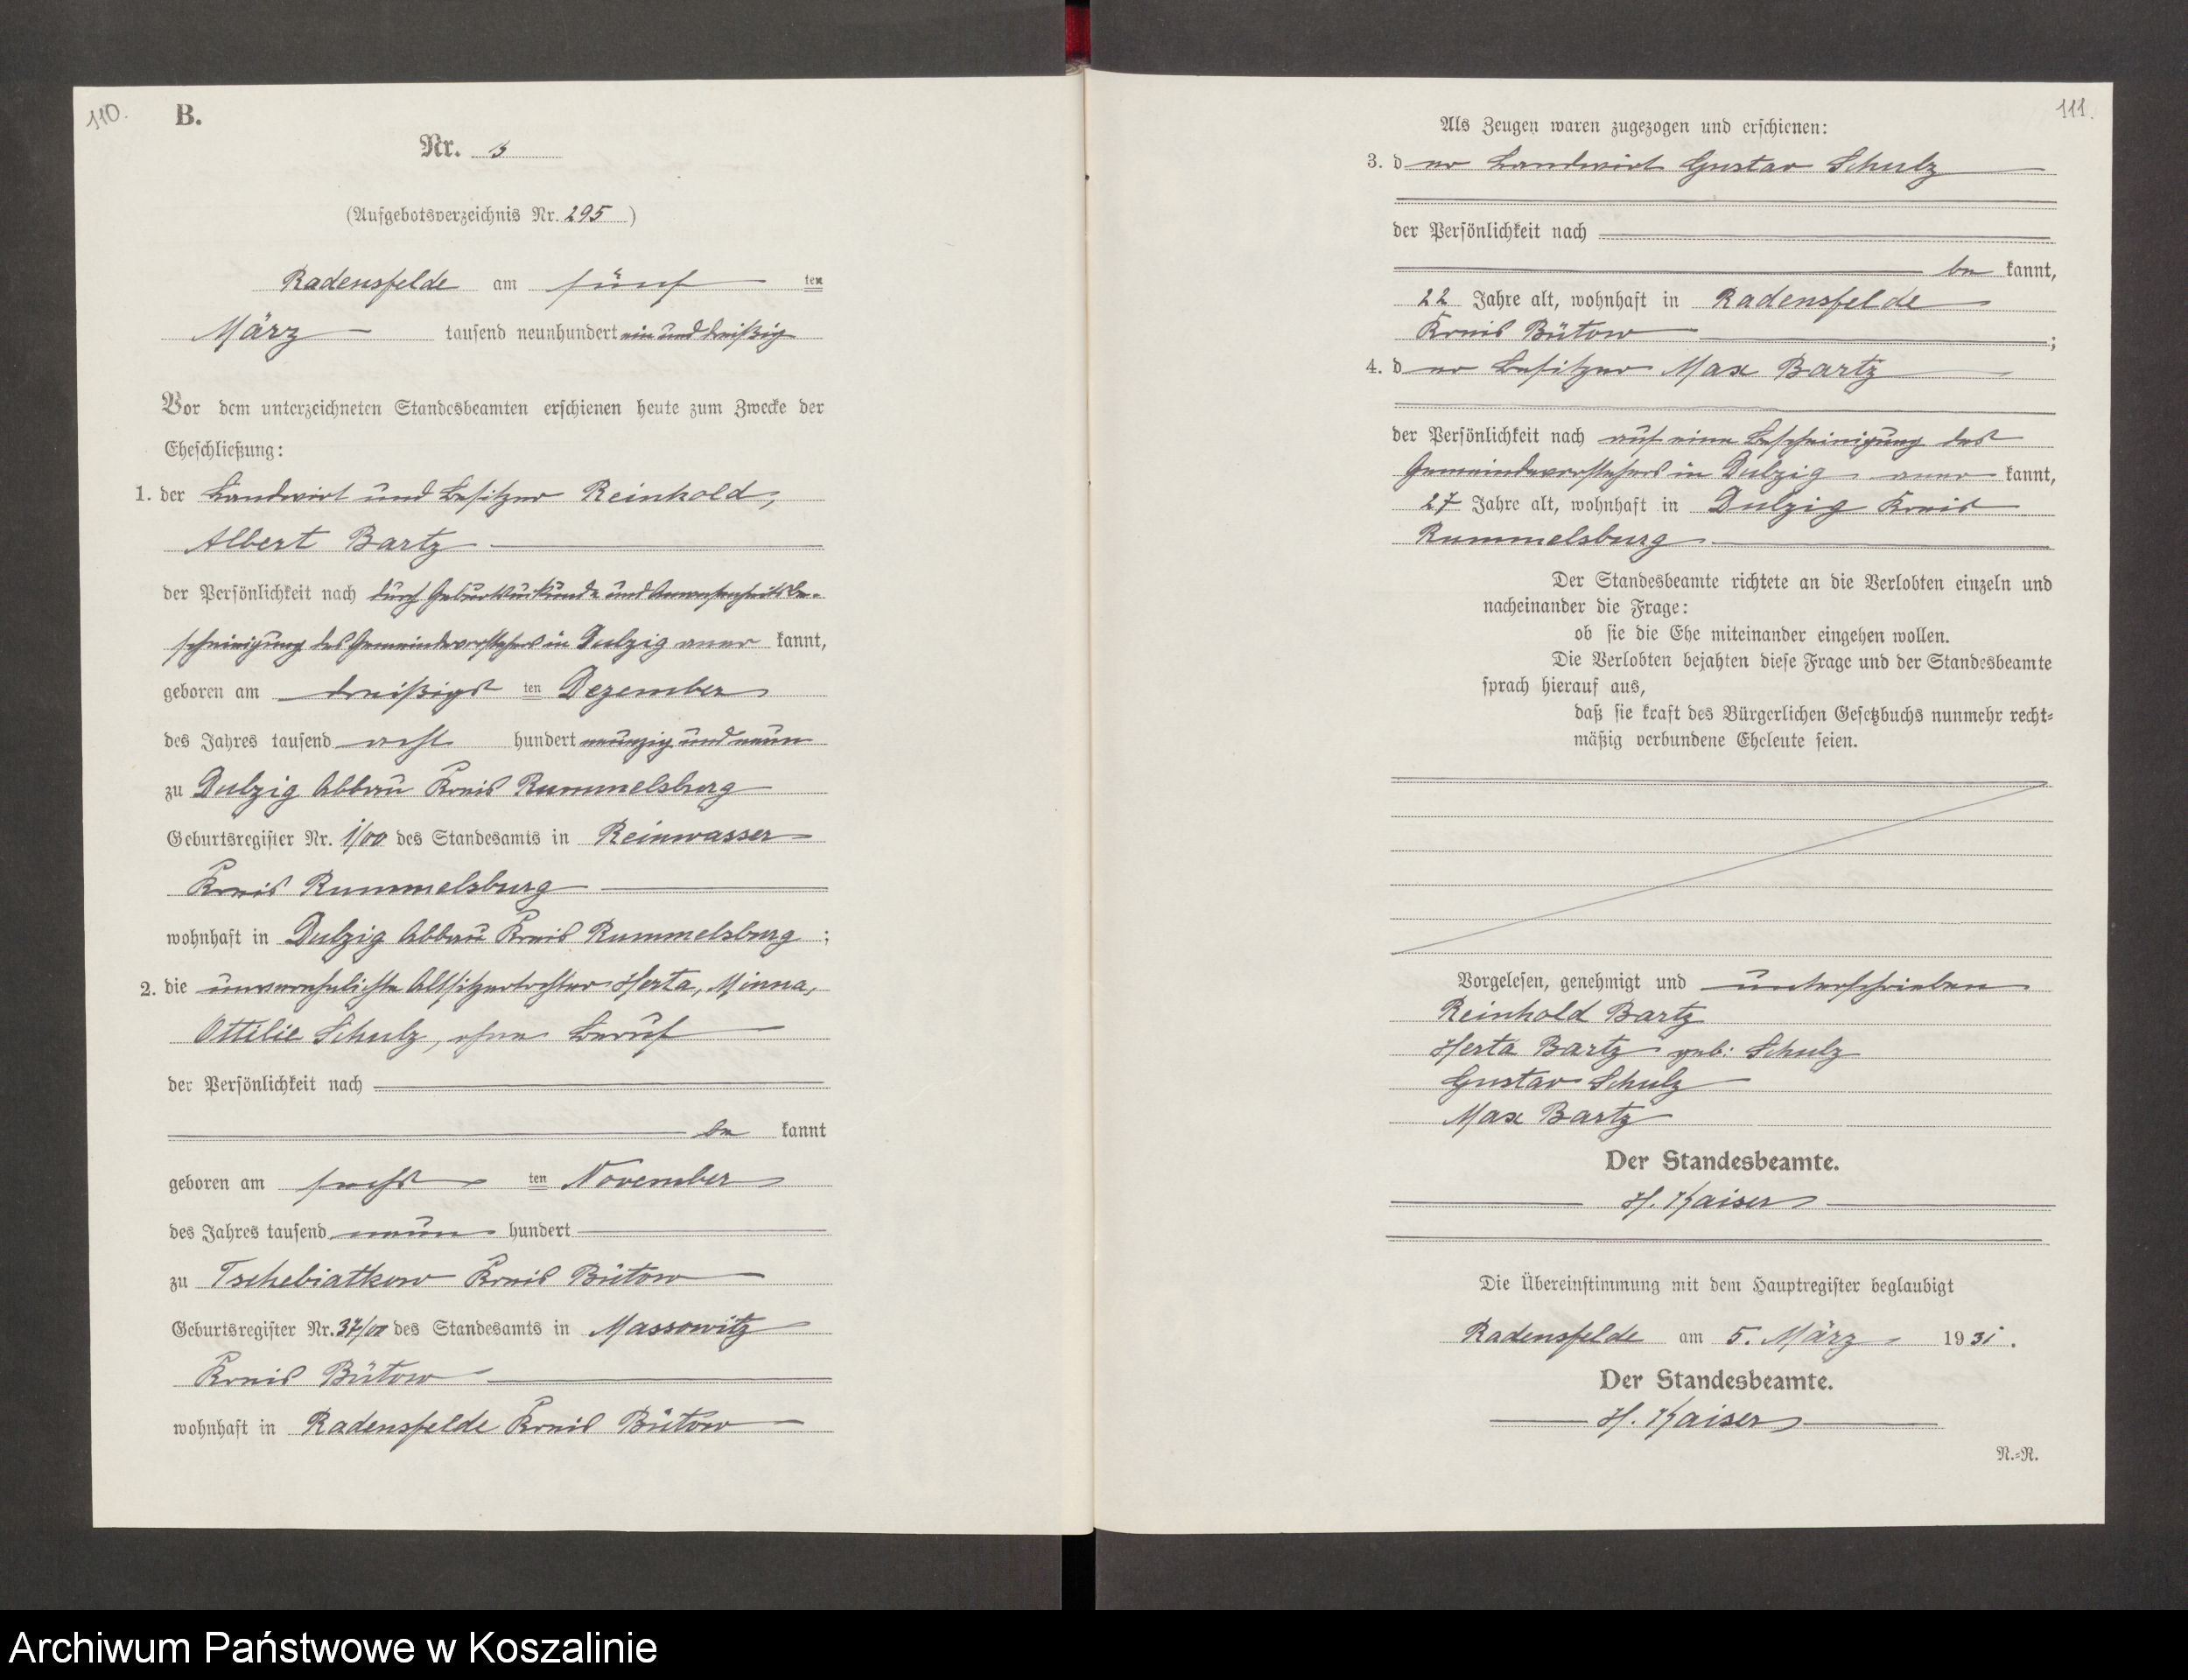 110.
B.
Nr. 3
(Aufgebotsverzeichnis Nr. 295)
Radensfelde am fünf ten
März tausend neunhundert ein und dreißig
Vor dem unterzeichneten Standesbeamten erschienen heute zum Zwecke der
Eheschließung:
1. der Landwirt und Besitzer Reinhold,
Albert Bartz
der Persönlichkeit nach durch Geburtsurkunde und Anwesenheitsbe-
scheinigung des Gemeindevorstehers in Dulzig aner kannt,
geboren am dreißigs ten Dezember
des Jahres tausend acht hundert neunzig und neun
zu Dulzig Abbau Kreis Rummelsburg
Geburtsregister Nr. 1/00 des Standesamts in Reinwasser
Kreis Rummelsburg
wohnhaft in Dulzig Abbau Kreis Rummelsburg ;
2. die unverehelichte Altsitzertochter Herta, Minna,
Ottilie Schulz, ohne Beruf
der Persönlichkeit nach
be kannt
geboren am sechs ten November
des Jahres tausend neun hundert
zu Tschebiatkow Kreis Bütow
Geburtsregister Nr. 37/00 des Standesamts in Massowitz
Kreis Bütow
wohnhaft in Radensfelde Kreis Bütow
111.
Als Zeugen waren zugezogen und erschienen:
3. d er Landwirt Gustav Schulz
der Persönlichkeit nach
be kannt,
22 Jahre alt, wohnhaft in Radensfelde
Kreis Bütow ;
4. d er Besitzer Max Bartz
der Persönlichkeit nach auf eine Bescheinigung des
Gemeindevorstehers in Dulzig aner kannt,
27 Jahre alt, wohnhaft in Dulzig Kreis
Rummelsburg
Der Standesbeamte richtete an die Verlobten einzeln und
nacheinander die Frage:
ob sie die Ehe miteinander eingehen wollen.
Die Verlobten bejahten diese Frage und der Standesbeamte
sprach hierauf aus,
daß sie kraft des Bürgerlichen Gesetzbuchs nunmehr recht-
mäßig verbundene Eheleute seien.
Vorgelesen, genehmigt und unterschrieben
Reinhold Bartz
Herta Bartz geb. Schulz
Gustav Schulz
Max Bartz
Der Standesbeamte.
H. Kaiser
Die Übereinstimmung mit dem Hauptregister beglaubigt
Radensfelde am 5. März 1931.
Der Standesbeamte.
H. Kaiser
N.-R.
Archiwum Państwowe w Koszalinie